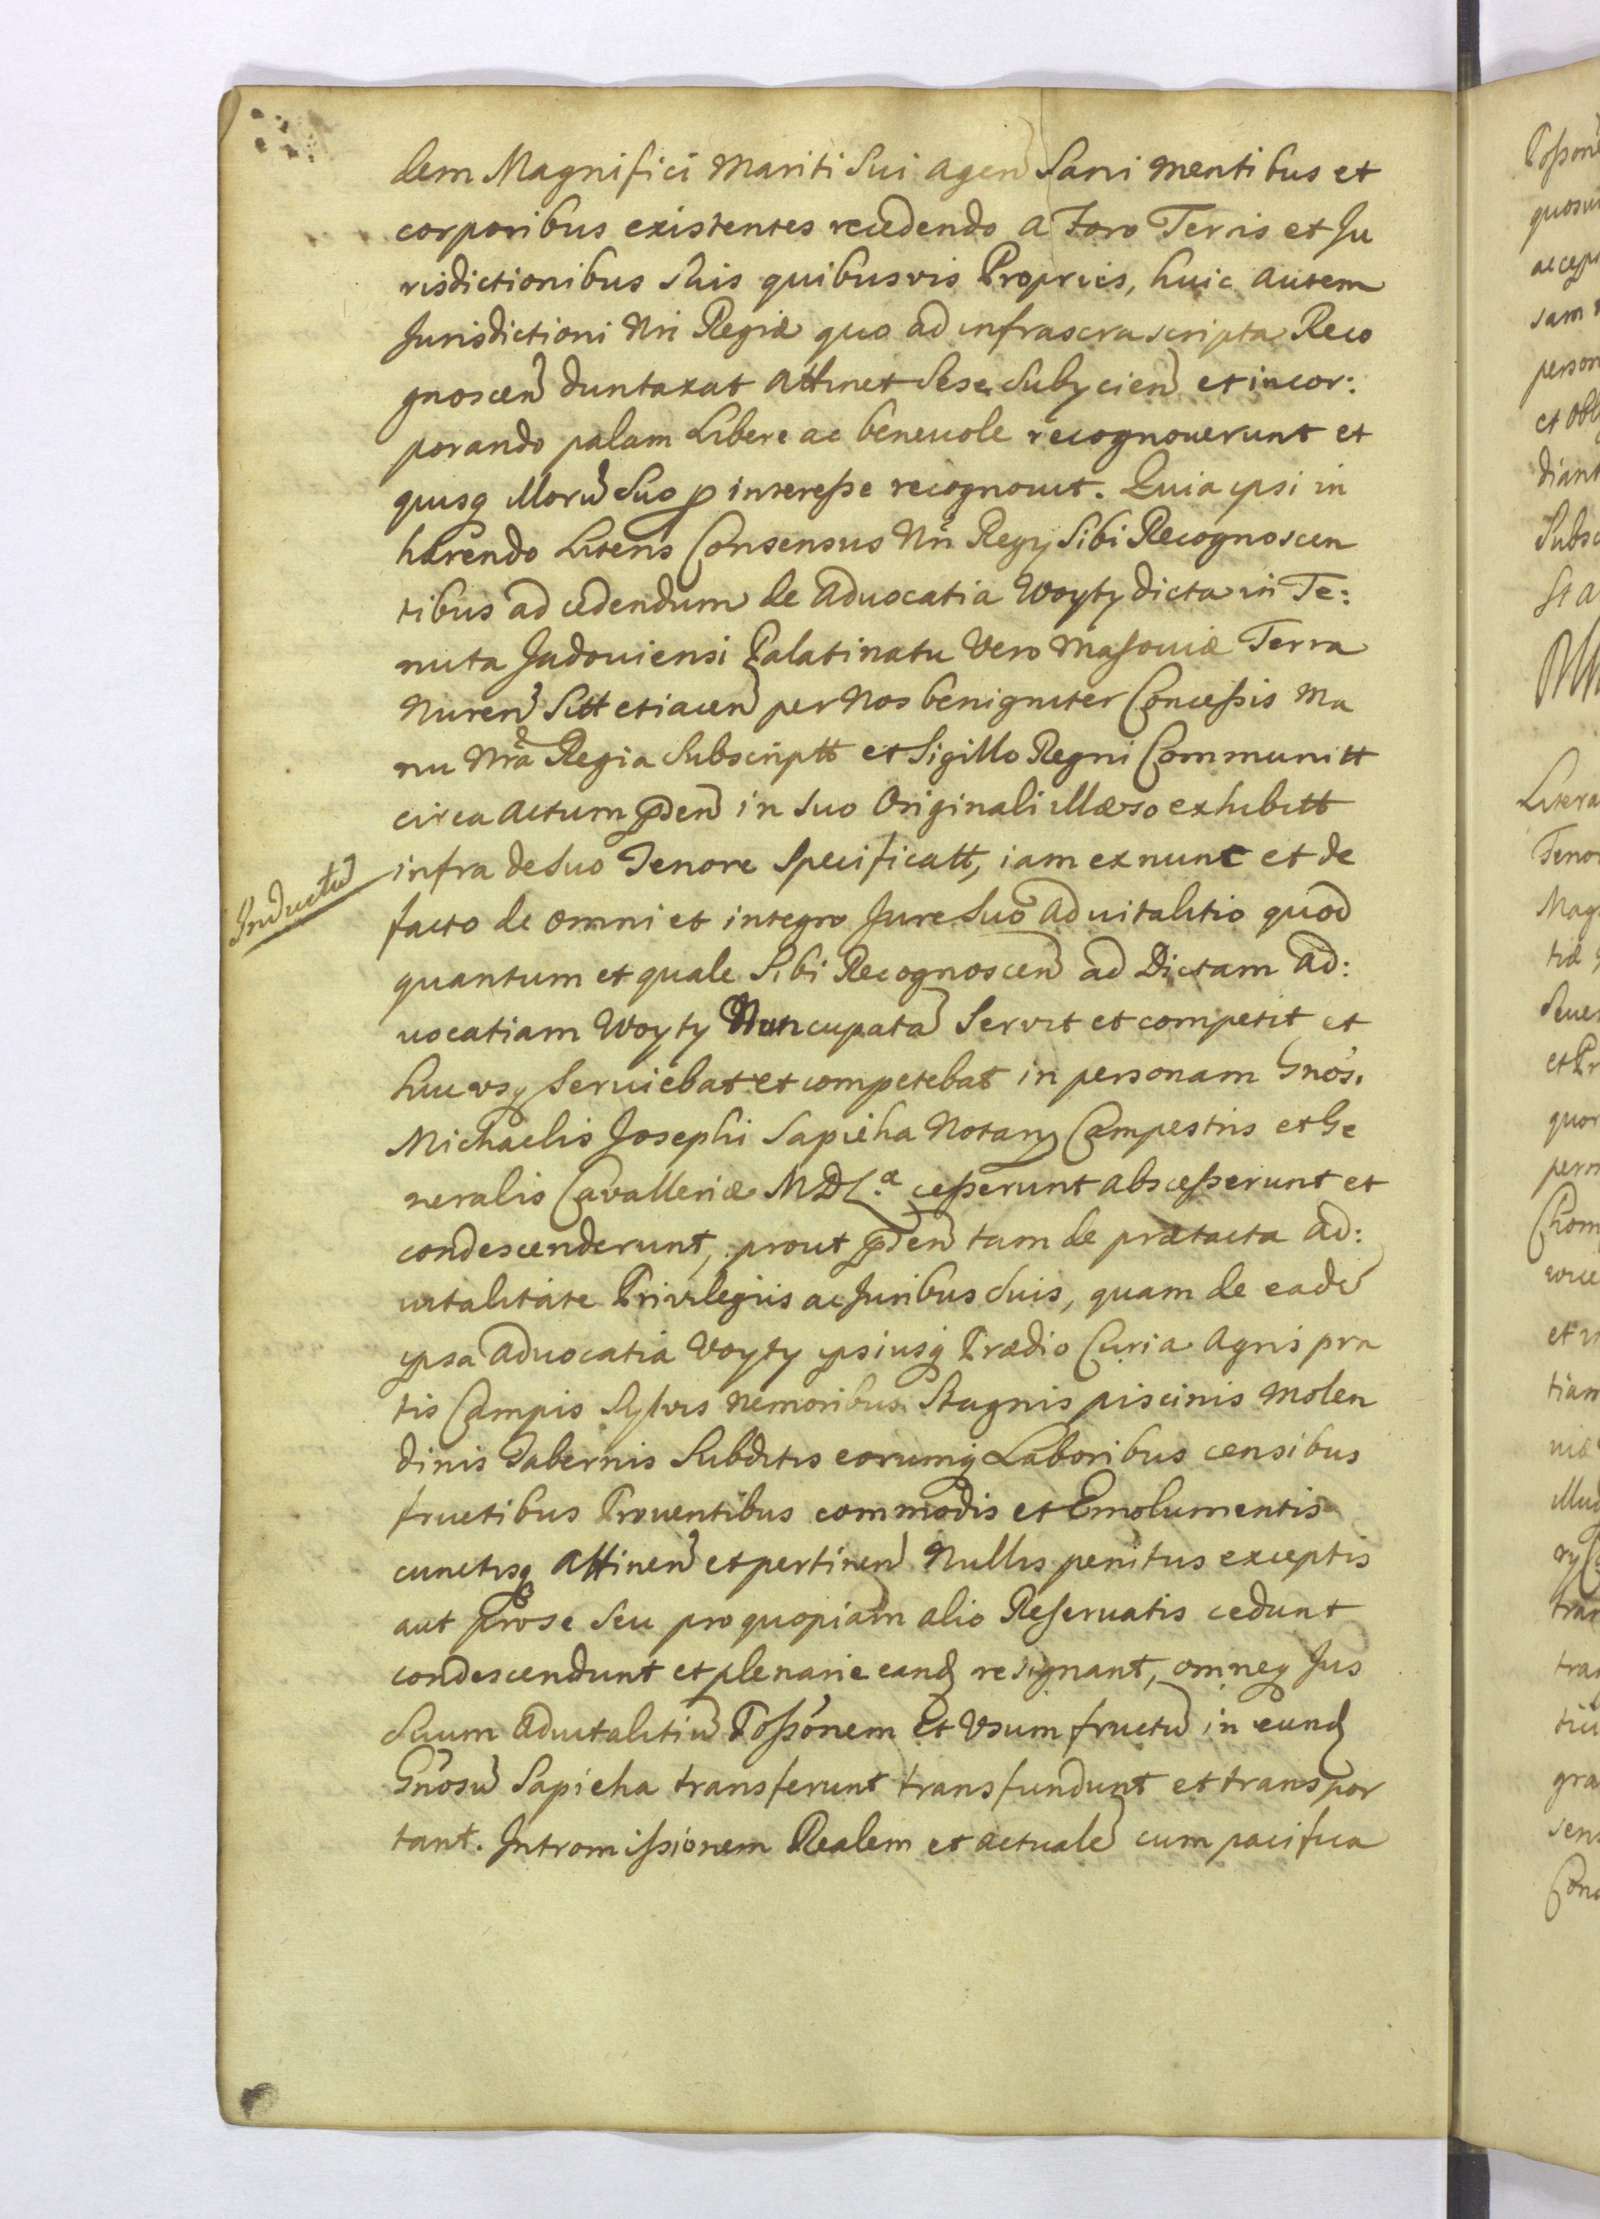 dem Magnifici Mariti Sui agen Sani mentibus et
corporibus existentes recedendo a Foro Terris et Ju
risdictionibus suis quibusvis Proprijs, huic autem
Jurisdictioni Nri Regiæ quo ad infrascra scripta Reco
gnoscen duntaxat attinet Sese Subycien et incor:
porando palam Libere ac beneuole recognouerunt et
quisq Illorũ Suo p interesse recognouit. Quia ipsi in
hærendo Literis Consensus Nri Regij Sibi Recognoscen
tibus ad cedendum de Aduocatia Woyty dicta in Te:
nuta Jadouiensi Palatinatu Vero Masouiæ Terra
Nuren Sitt etiacen per Nos benigniter Concessis Ma
nu Nrã Regia Subscriptt et Sigillo Regni Communitt
circa actum pñden in Suo Originali illæso exhibitt
infra de Suo Tenore Specificatt, iam ex nunc et de
Inductũ
facto de omni et integro Jure Suo aduitalitio quod
quantum et quale Sibi Recognoscen ad Dictam Ad:
uocatiam Woyty Nuncupatã Servit et competit et
huc vsq Seruiebat et competebat in personam Gnosi
Michaelis Josephi Sapieha Notarij Campestris et Ge
neralis Cavalleriæ MDL.a cesserunt abscesserunt et
condescenderunt, prout pñden tam de prætacta Ad:
uitalitate Privilegiis ac Juribus Suis, quam de eadẽ
ipsa Aduocatia Voyty ipsiusq Prædio Curia Agris pra
tis Campis Sylvis nemoribus Stagnis piscinis Molen
dinis Tabernis Subditis eorumq Laboribus censibus
fructibus Prouentibus commodis et Emolumentis
cunctisq attinen et pertinen Nullis penitus exceptis
aut pro se Seu pro quopiam alio Reseruatis cedunt
condescendunt et plenarie eand resignant, omneq Jus
Suum Aduitalitiũ Possonem Et Vsum fructũ in eund
Gnosũ Sapieha transferunt transfundunt et transpor
tant. Intromissionem Realem et actualẽ cum pacifica